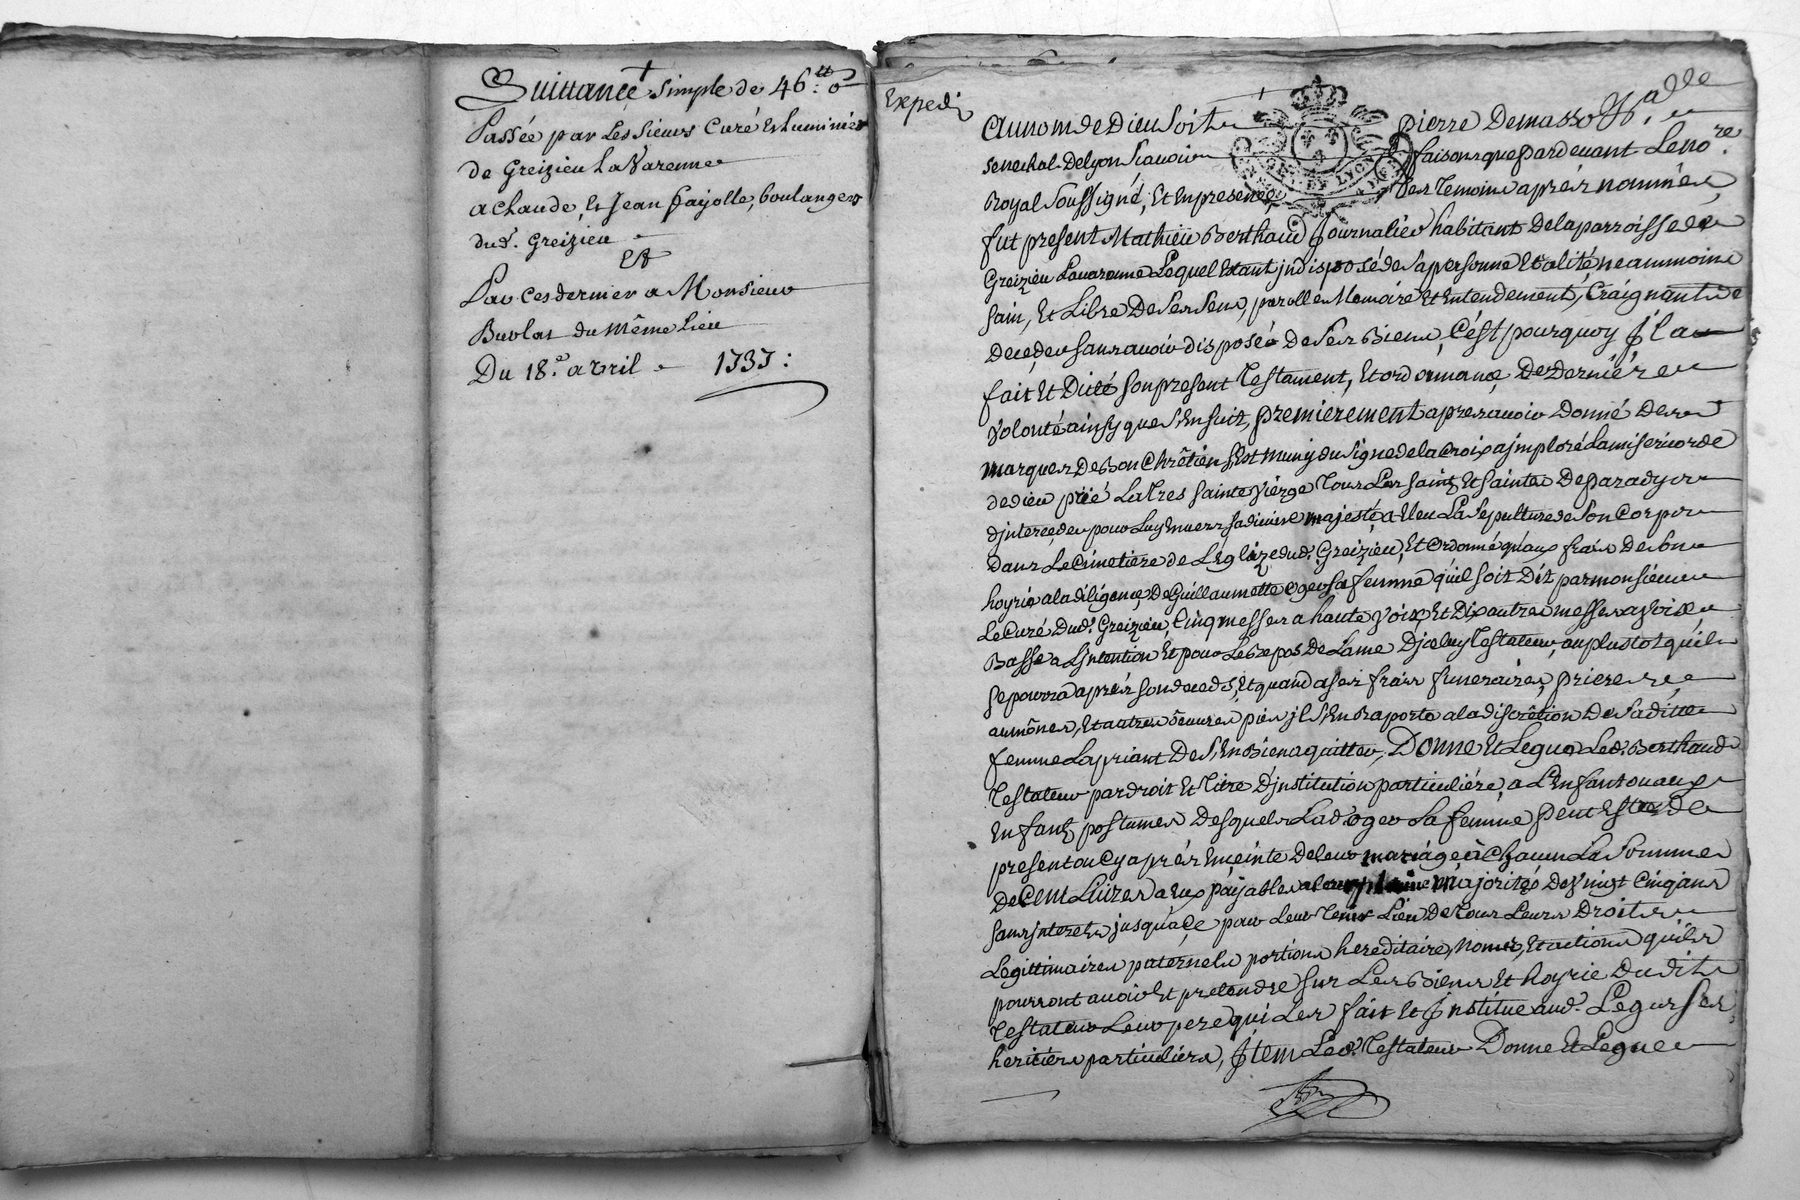 Quittance simple de 46 ₶
Passée par Les Sieurs Curé Et Luminier
de Greizieu La Varenne
a Claude, Et Jean fayolle, boulangers
dud. Greizieu
Et
Par Ces dernier a Monsieur
Burlat du même Lieu
Du 18.e avril 1737 :
Expedi
Au nom de Dieu Soit Pierre Demasso
Senechal De Lyon Scavoir faisons que pardevant Le no.re
Royal Soussigné, Et En presence Des Temoins aprés nommés,
fût present Mathieu Berthaud Journalier habitant De la parroisse de
Greizieu Lavarenne Lequel Etant jndisposé de Sa personne Et alité neammoins
Sain, Et Libre De Ses Sens, parolle Memoire Et Entendement, Craignant de
deceder Sans avoir disposé De Ses Biens, C'ést pourquoy Jl a
fait Et Dicté Son present Testament, Et ordonnance De Derniére
Volonté ainsy que S'En Suit, premierement apres avoir Donné Des
marques De Bon Chrêtien S'Est Muny du Signe de la Croix a jmploré La misericorde
de dieu prié La Tres Sainte Viérge Tous Les Saints Et Saintes De paradys
d'jnterceder pour Luy Envers Sa divine majesté, a Elu La Sepulture de Son Corps
dans Le Cimetiere de L'Eglize dud. Greizieu, Et Ordonné qu'aux frais De Son
hoyrie a la diligence De Guillaumette Oger Sa femme qu'il Soit Dit par monsieur
Le Curé Dud. Greizieu, Cinq messes a haute Voix, Et Dix autres messes a Voix
Basse a L'jntention Et pour Le Repos De L'ame D'jceluy Testateur, au plustot qu'il
Se pourra aprés Son deceds, Et quand a Ses frais funeraires, prieres
aumônes, Et autres œuvres pies jl S'En Raporte a la discrêtion De Sa ditte
femme La priant De S'En Bien aquitter, Donne Et Legue Led. Berthaud
Testateur par droit Et Titre D'jnstitution particuliére, a L'Enfant ou aux
Enfants postumes Desquels Lad. Oger Sa femme peut Estre de
present ou Cy aprés Enceinte De Leur mariage à Chacun La Somme
De Cent Livres a Eux payable a Leur plaine Majorité De Vingt Cinq ans
Sans jnterets jusqu'a Ce pour Leur Tenir Lieu De Tous Leurs Droits
Legittimaires paternels portions hereditaire, Noms, Et actions qu'ils
pourront avoir Et pretendre Sur Les Biens Et hoyrie Dudit
Testateur Leur pere qui Les fait Et Jnstitue aud. Legs Ses
heritiers particuliers, Jtem Led. Testateur Donne Et Legue